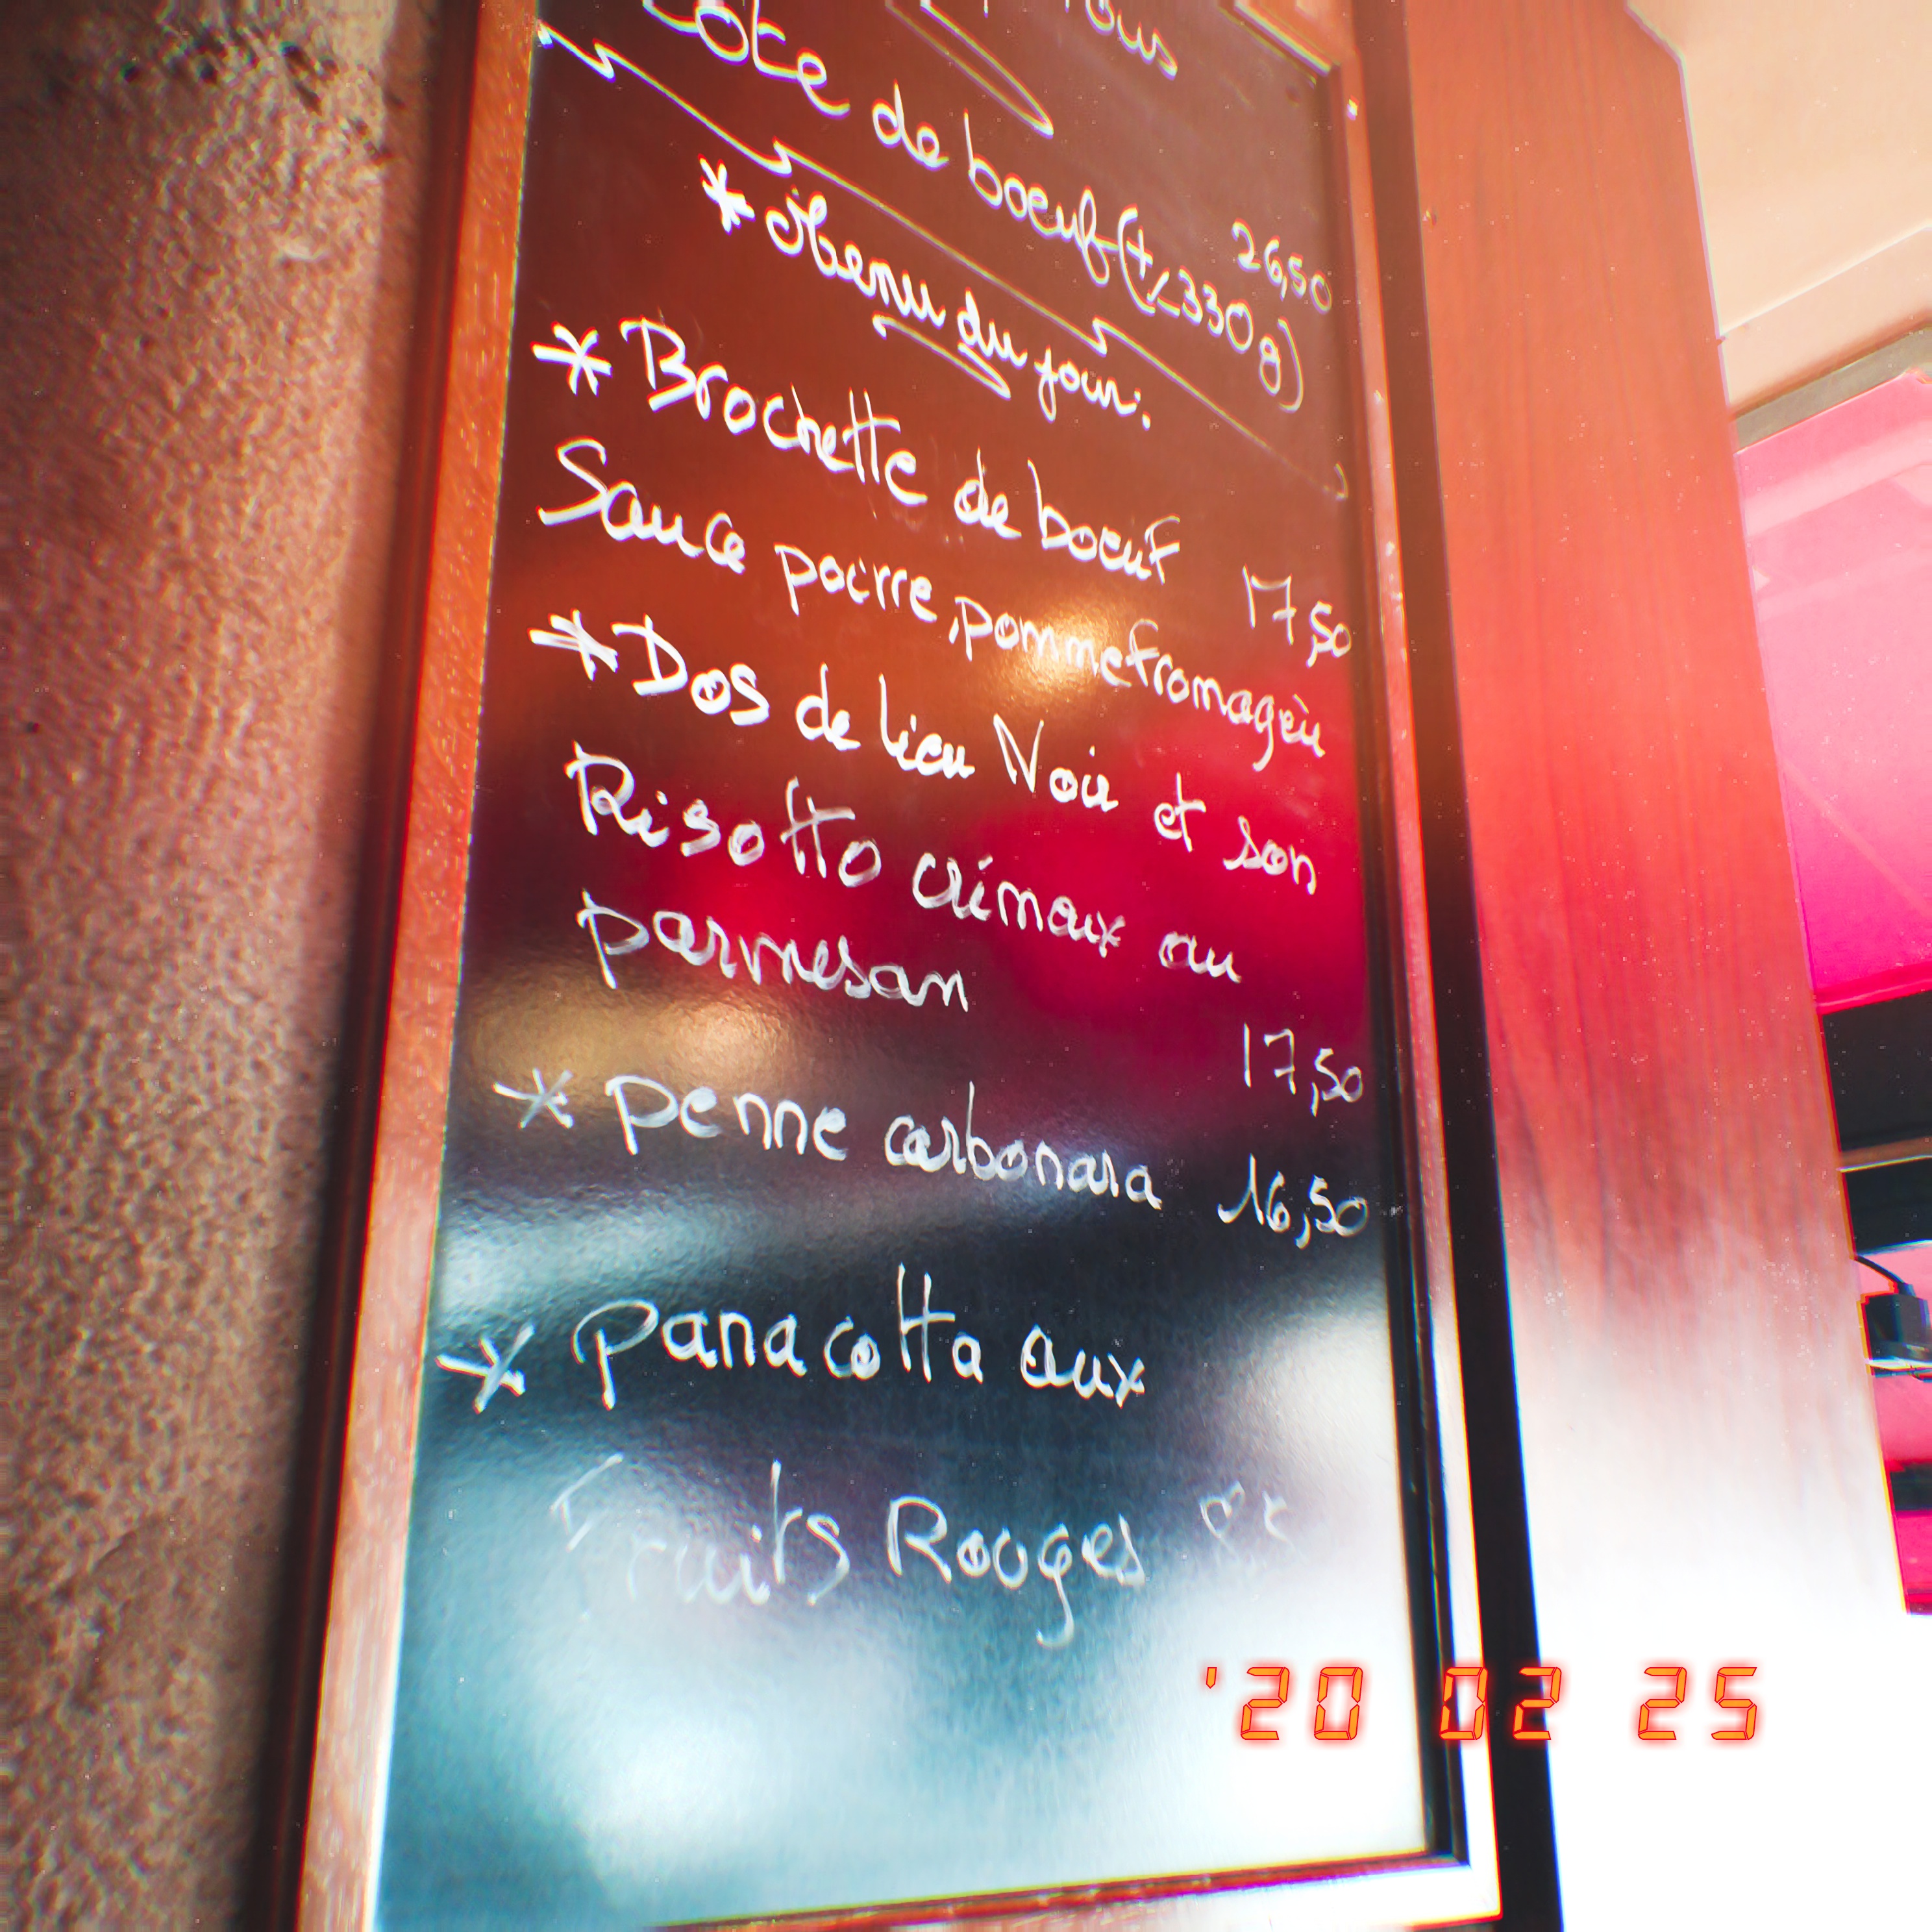 Côte de boeuf (± 330g)
26,50
* Menu du jour:
* Brochette de boeuf
17,50
Sauce poivre, pomme fromagère
* Dos de lieu Noir et son
Risotto crémeux au
parmesan
17,50
* penne carbonara 16,50
* panacotta aux
Fruits Rouges
'20 02 25